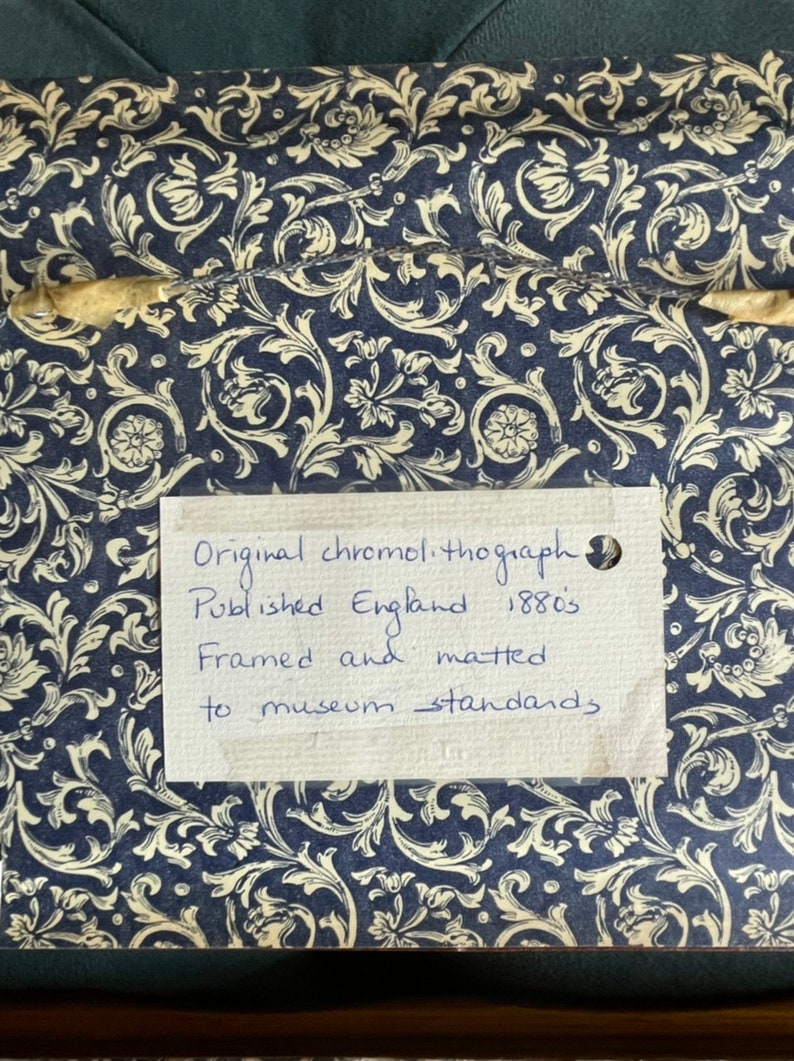 Original chromolithograph
Published England 1880's
Framed and matted
to museum standards